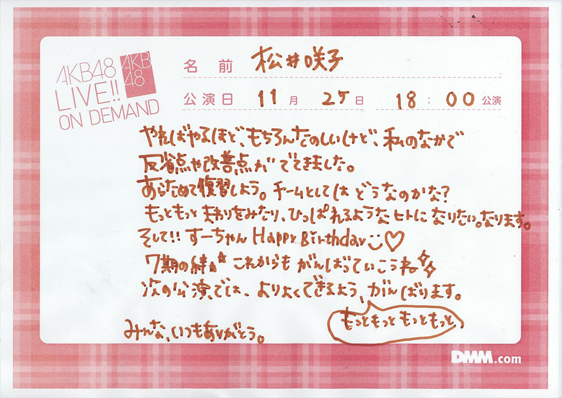 AKB48
LIVE!!
ON DEMAND
AKB
48
名前 松井咲子
公演日 11月25日 18:00公演
やればやるほど、もちろんたのしいけど、私のなかで
反省点や改善点がでてきました。
あらためて復習しよう。チームとしてはどうなのかな?
もっともっとまわりをみたり、ひっぱれるようなヒトになりたい。なります。
そして!!すーちゃんHappy Birthday♡
7期の絆 これからもがんばっていこうね
次の公演では、よりよくできるよう、がんばります。
もっともっともっともっと、
みんな、いつもありがとう。
DMM.com